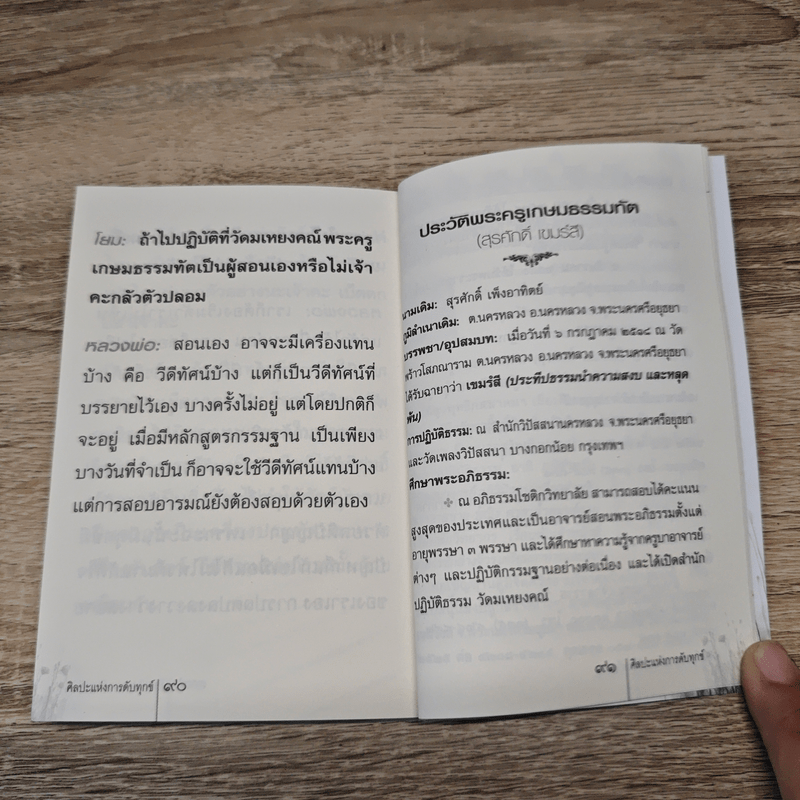 โยม: ถ้าไปปฏิบัติที่วัดมเหยงคณ์ พระครู
เกษมธรรมทัตเป็นผู้สอนเองหรือไม่เจ้า
คะกลัวตัวปลอม
หลวงพ่อ: สอนเอง อาจจะมีเครื่องแทน
บ้าง คือ วีดีทัศน์บ้าง แต่ก็เป็นวีดีทัศน์ที่
บรรยายไว้เอง บางครั้งไม่อยู่ แต่โดยปกติก็
จะอยู่ เมื่อมีหลักสูตรกรรมฐาน เป็นเพียง
บางวันที่จำเป็น ก็อาจจะใช้วีดีทัศน์แทนบ้าง
แต่การสอบอารมณ์ยังต้องสอบด้วยตัวเอง
ศิลปะแห่งการดับทุกข์ ๙๐
ประวัติพระครูเกษมธรรมทัต
(สุรศักดิ์ เขมรํสี)
นามเดิม: สุรศักดิ์ เพ็งอาทิตย์
ภูมิลำเนาเดิม: ต.นครหลวง อ.นครหลวง จ.พระนครศรีอยุธยา
บรรพชา/อุปสมบท: เมื่อวันที่ ๖ กรกฎาคม ๒๕๑๘ ณ วัด
พร้าวโสภณาราม ต.นครหลวง อ.นครหลวง จ.พระนครศรีอยุธยา
ได้รับฉายาว่า เขมรํสี (ประทีปธรรมนำความสงบ และหลุด
พ้น)
การปฏิบัติธรรม: ณ สำนักวิปัสสนานครหลวง จ.พระนครศรีอยุธยา
และวัดเพลงวิปัสสนา บางกอกน้อย กรุงเทพฯ
ศึกษาพระอภิธรรม:
ณ อภิธรรมโชติกวิทยาลัย สามารถสอบได้คะแนน
สูงสุดของประเทศและเป็นอาจารย์สอนพระอภิธรรมตั้งแต่
อายุพรรษา ๓ พรรษา และได้ศึกษาหาความรู้จากครูบาอาจารย์
ต่างๆ และปฏิบัติกรรมฐานอย่างต่อเนื่อง และได้เปิดสำนัก
ปฏิบัติธรรม วัดมเหยงคณ์
๙๑ ศิลปะแห่งการดับทุกข์